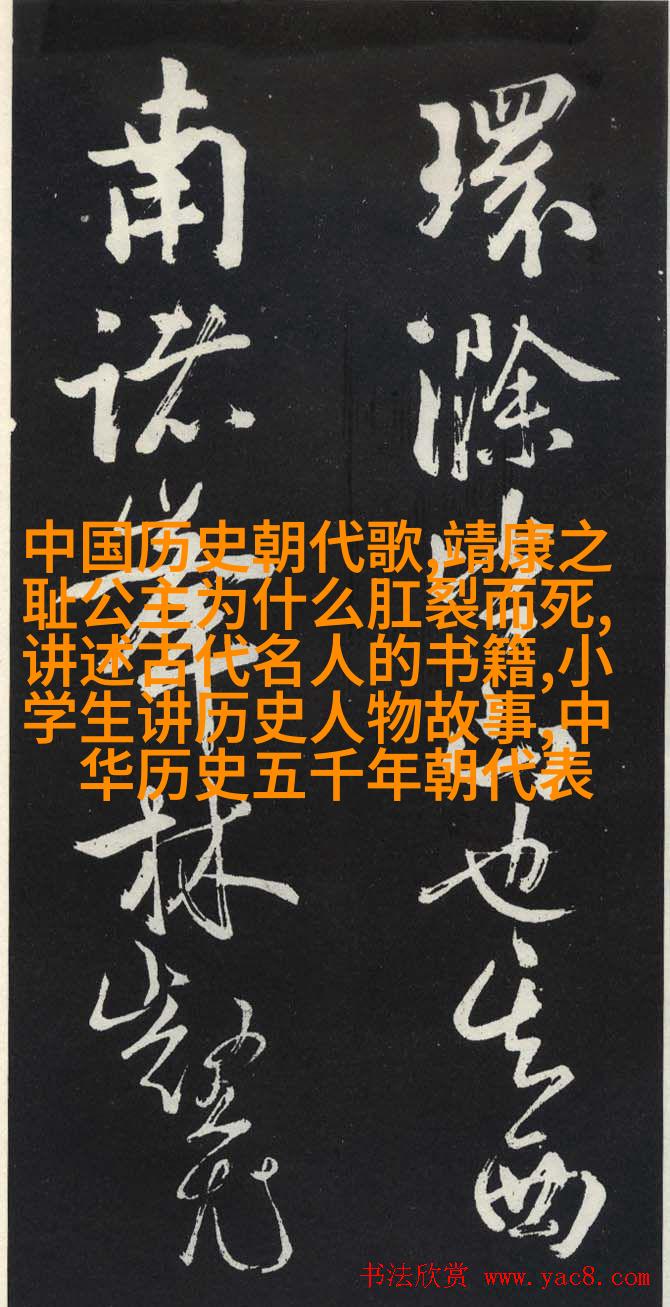 環滁皆山也其西
南諸峯林壑尤
中国历史朝代歌,靖康之
耻公主为什么肛裂而死,
讲述古代名人的书籍,小
学生讲历史人物故事,中
华历史五千年朝代表
书法欣赏 www.yac8.com